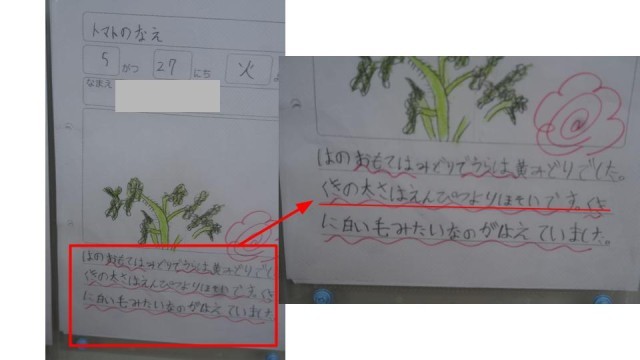 トマトのなえ
5がつ27にち火
なまえ
はのおもてはみどりでうらは黄みどりでし
くきの太さはえんぴつよりほそいです。くき
に白い毛みたいなのがはえていました。
はのおもてはみどりでうらは黄みどりでした。
くきの太さはえんぴつよりほそいです。くき
に白い毛みたいなのがはえていました。